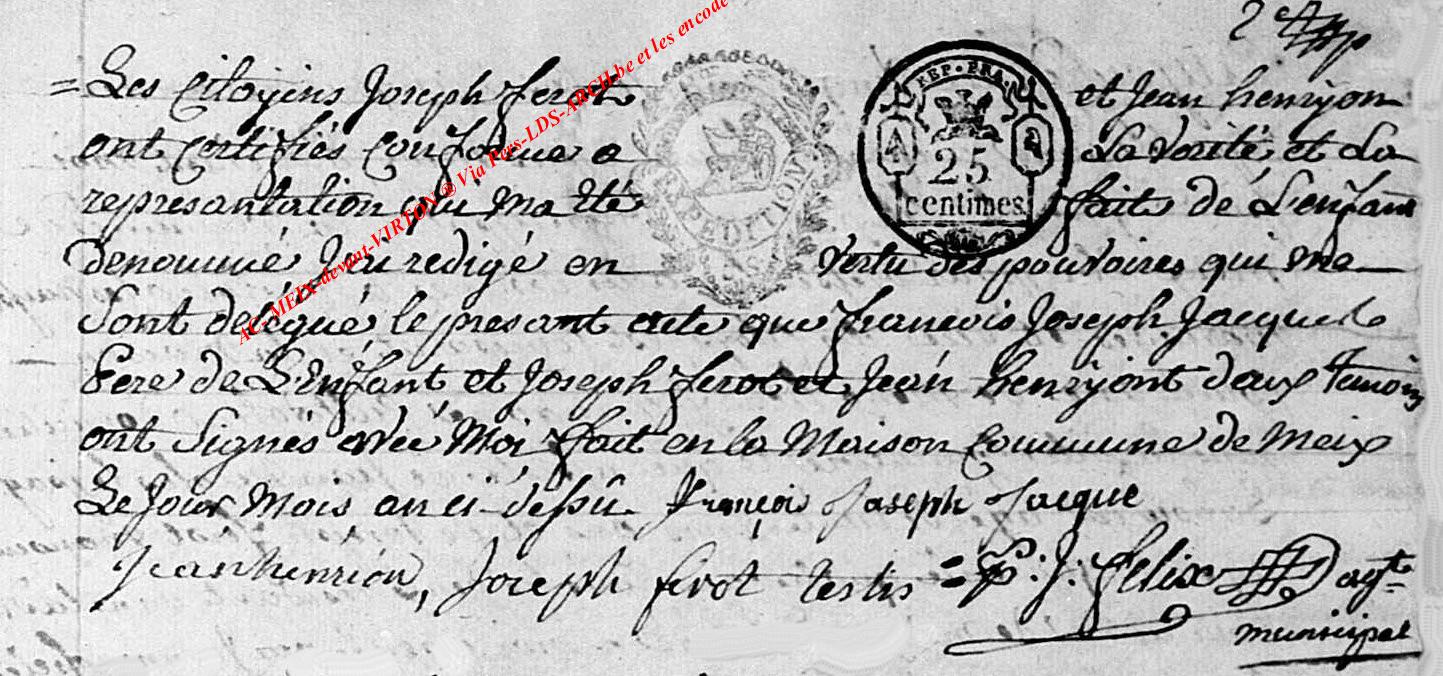 = Les Citoyens Joseph ferot et Jean henryon
ont certifiés conforme a La verité et La
represantation qui ma été faite de L'enfant
denommé J'ai redigé en vertu des pouvoires qui me
Sont delégué le presant acte que francois Joseph Jacque le
Pere de L'Enfant et Joseph ferot et Jean henryont deux temoins
ont Signés avec Moi fait en la Maison Commune de Meix
Le Jour Mois an ci-dessû françois Joseph Jacque
Jean henrion, Joseph ferot testis = P: J: felix agt
municipal
REP. FRA.
25
centimes
EDITION
AC-MEIX-devant-VIRTON® Via Pers-LDS-ARCH.be et les encode